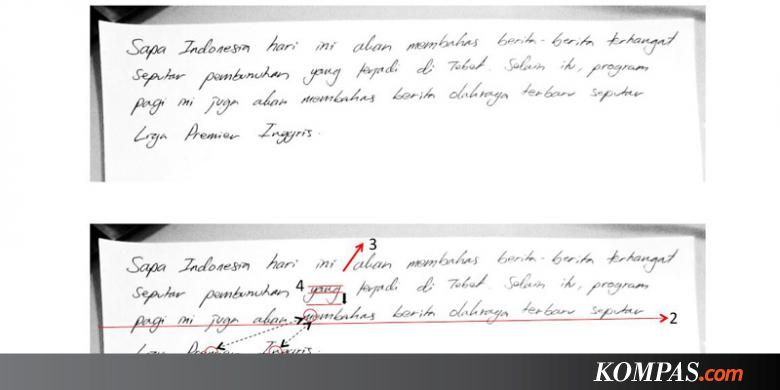 Sapa Indonesia hari ini akan membahas berita-berita terhangat
seputar pembunuhan yang terjadi di Tebet. Selain itu, program
pagi ini juga akan membahas berita olahraga terbaru seputar
Liga Premier Inggris.
3
Sapa Indonesia hari ini akan membahas berita-berita terhangat
4
seputar pembunuhan yang terjadi di Tebet. Selain itu, program
1
pagi ini juga akan membahas berita olahraga terbaru seputar
2
Liga Premier Inggris.
KOMPAS.com